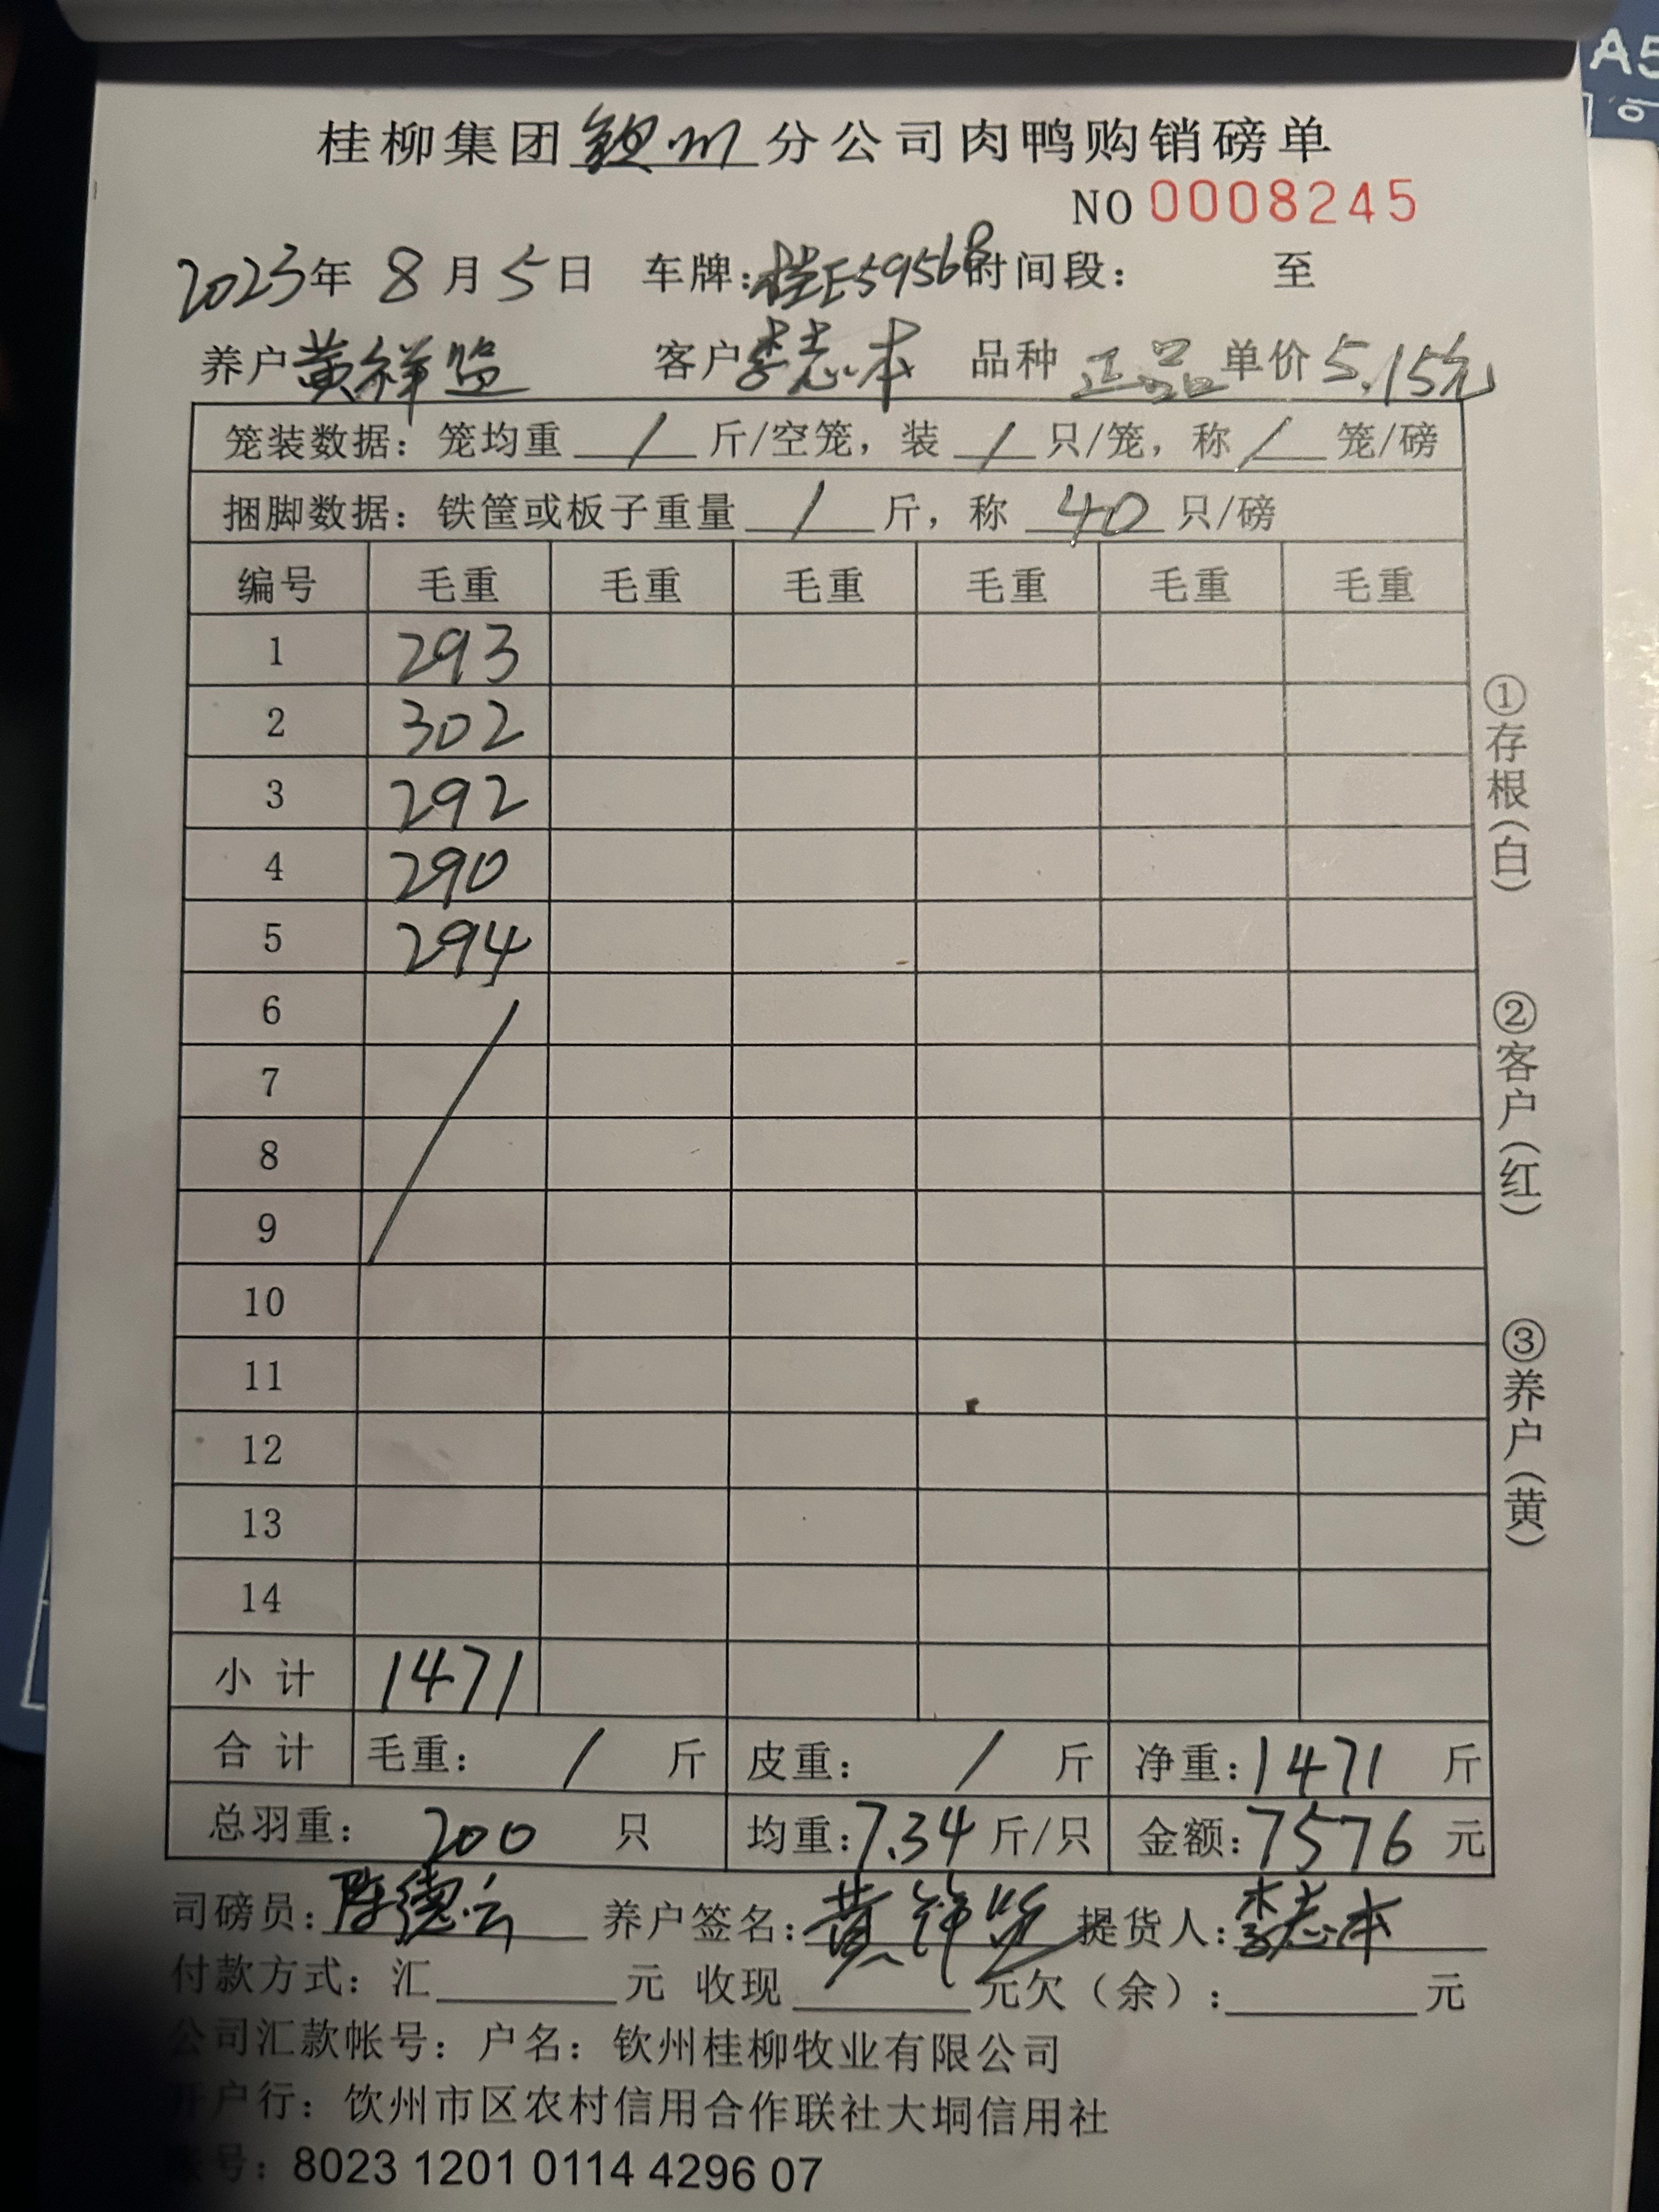 A5
桂柳集团钦州分公司肉鸭购销磅单
NO 0008245
2023年 8月5日 车牌:桂E5956 时间段: 至
养户 黄祥 客户 李志本 品种 正品 单价 5.15元
笼装数据: 笼均重 / 斤/空笼, 装 / 只/笼, 称 / 笼/磅
捆脚数据: 铁筐或板子重量 / 斤, 称 40 只/磅
编号 毛重 毛重 毛重 毛重 毛重 毛重
1 293
2 302
3 292
4 290
5 294
6
7
8
9
10
11
12
13
14
小计 1471
合计 毛重: / 斤 皮重: / 斤 净重:1471 斤
总羽重: 200 只 均重:7.34 斤/只 金额:7576 元
司磅员:陈德云 养户签名:黄祥 提货人:李志本
付款方式: 汇 元 收现 元欠（余）: 元
公司汇款帐号: 户名: 钦州桂柳牧业有限公司
开户行: 钦州市区农村信用合作联社大垌信用社
帐号: 8023 1201 0114 4296 07
①存根(白)
②客户(红)
③养户(黄)